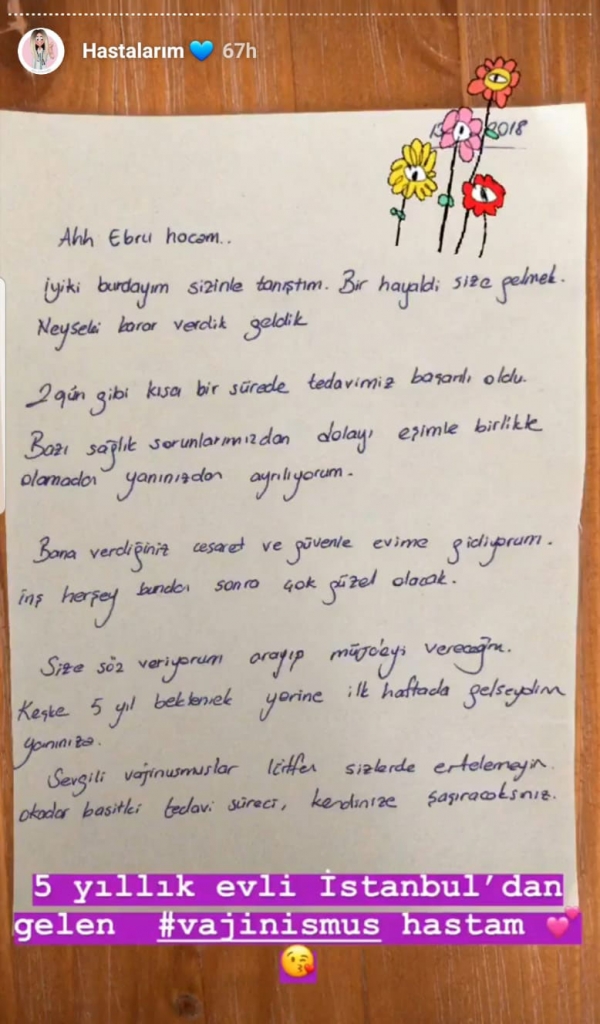 Hastalarım 💙 67h
2018
Ahh Ebru hocam..
iyiki burdayım sizinle tanıştım. Bir hayaldi size gelmek.
Neyseki karar verdik geldik
2 gün gibi kısa bir sürede tedavimiz başarılı oldu.
Bazı sağlık sorunlarımızdan dolayı eşimle birlikte
olamadan yanınızdan ayrılıyorum.
Bana verdiğiniz cesaret ve güvenle evime gidiyorum.
inş herşey bundan sonra çok güzel olacak.
Size söz veriyorum arayıp müjdeyi vereceğim.
Keşke 5 yıl beklemek yerine ilk haftada gelseydim
yanınıza.
Sevgili vajinusmuslar lütfen sizlerde ertelemeyin.
okadar basitki tedavi süreci, kendinize şaşıracaksınız.
5 yıllık evli İstanbul’dan
gelen #vajinismus hastam 💕
😘